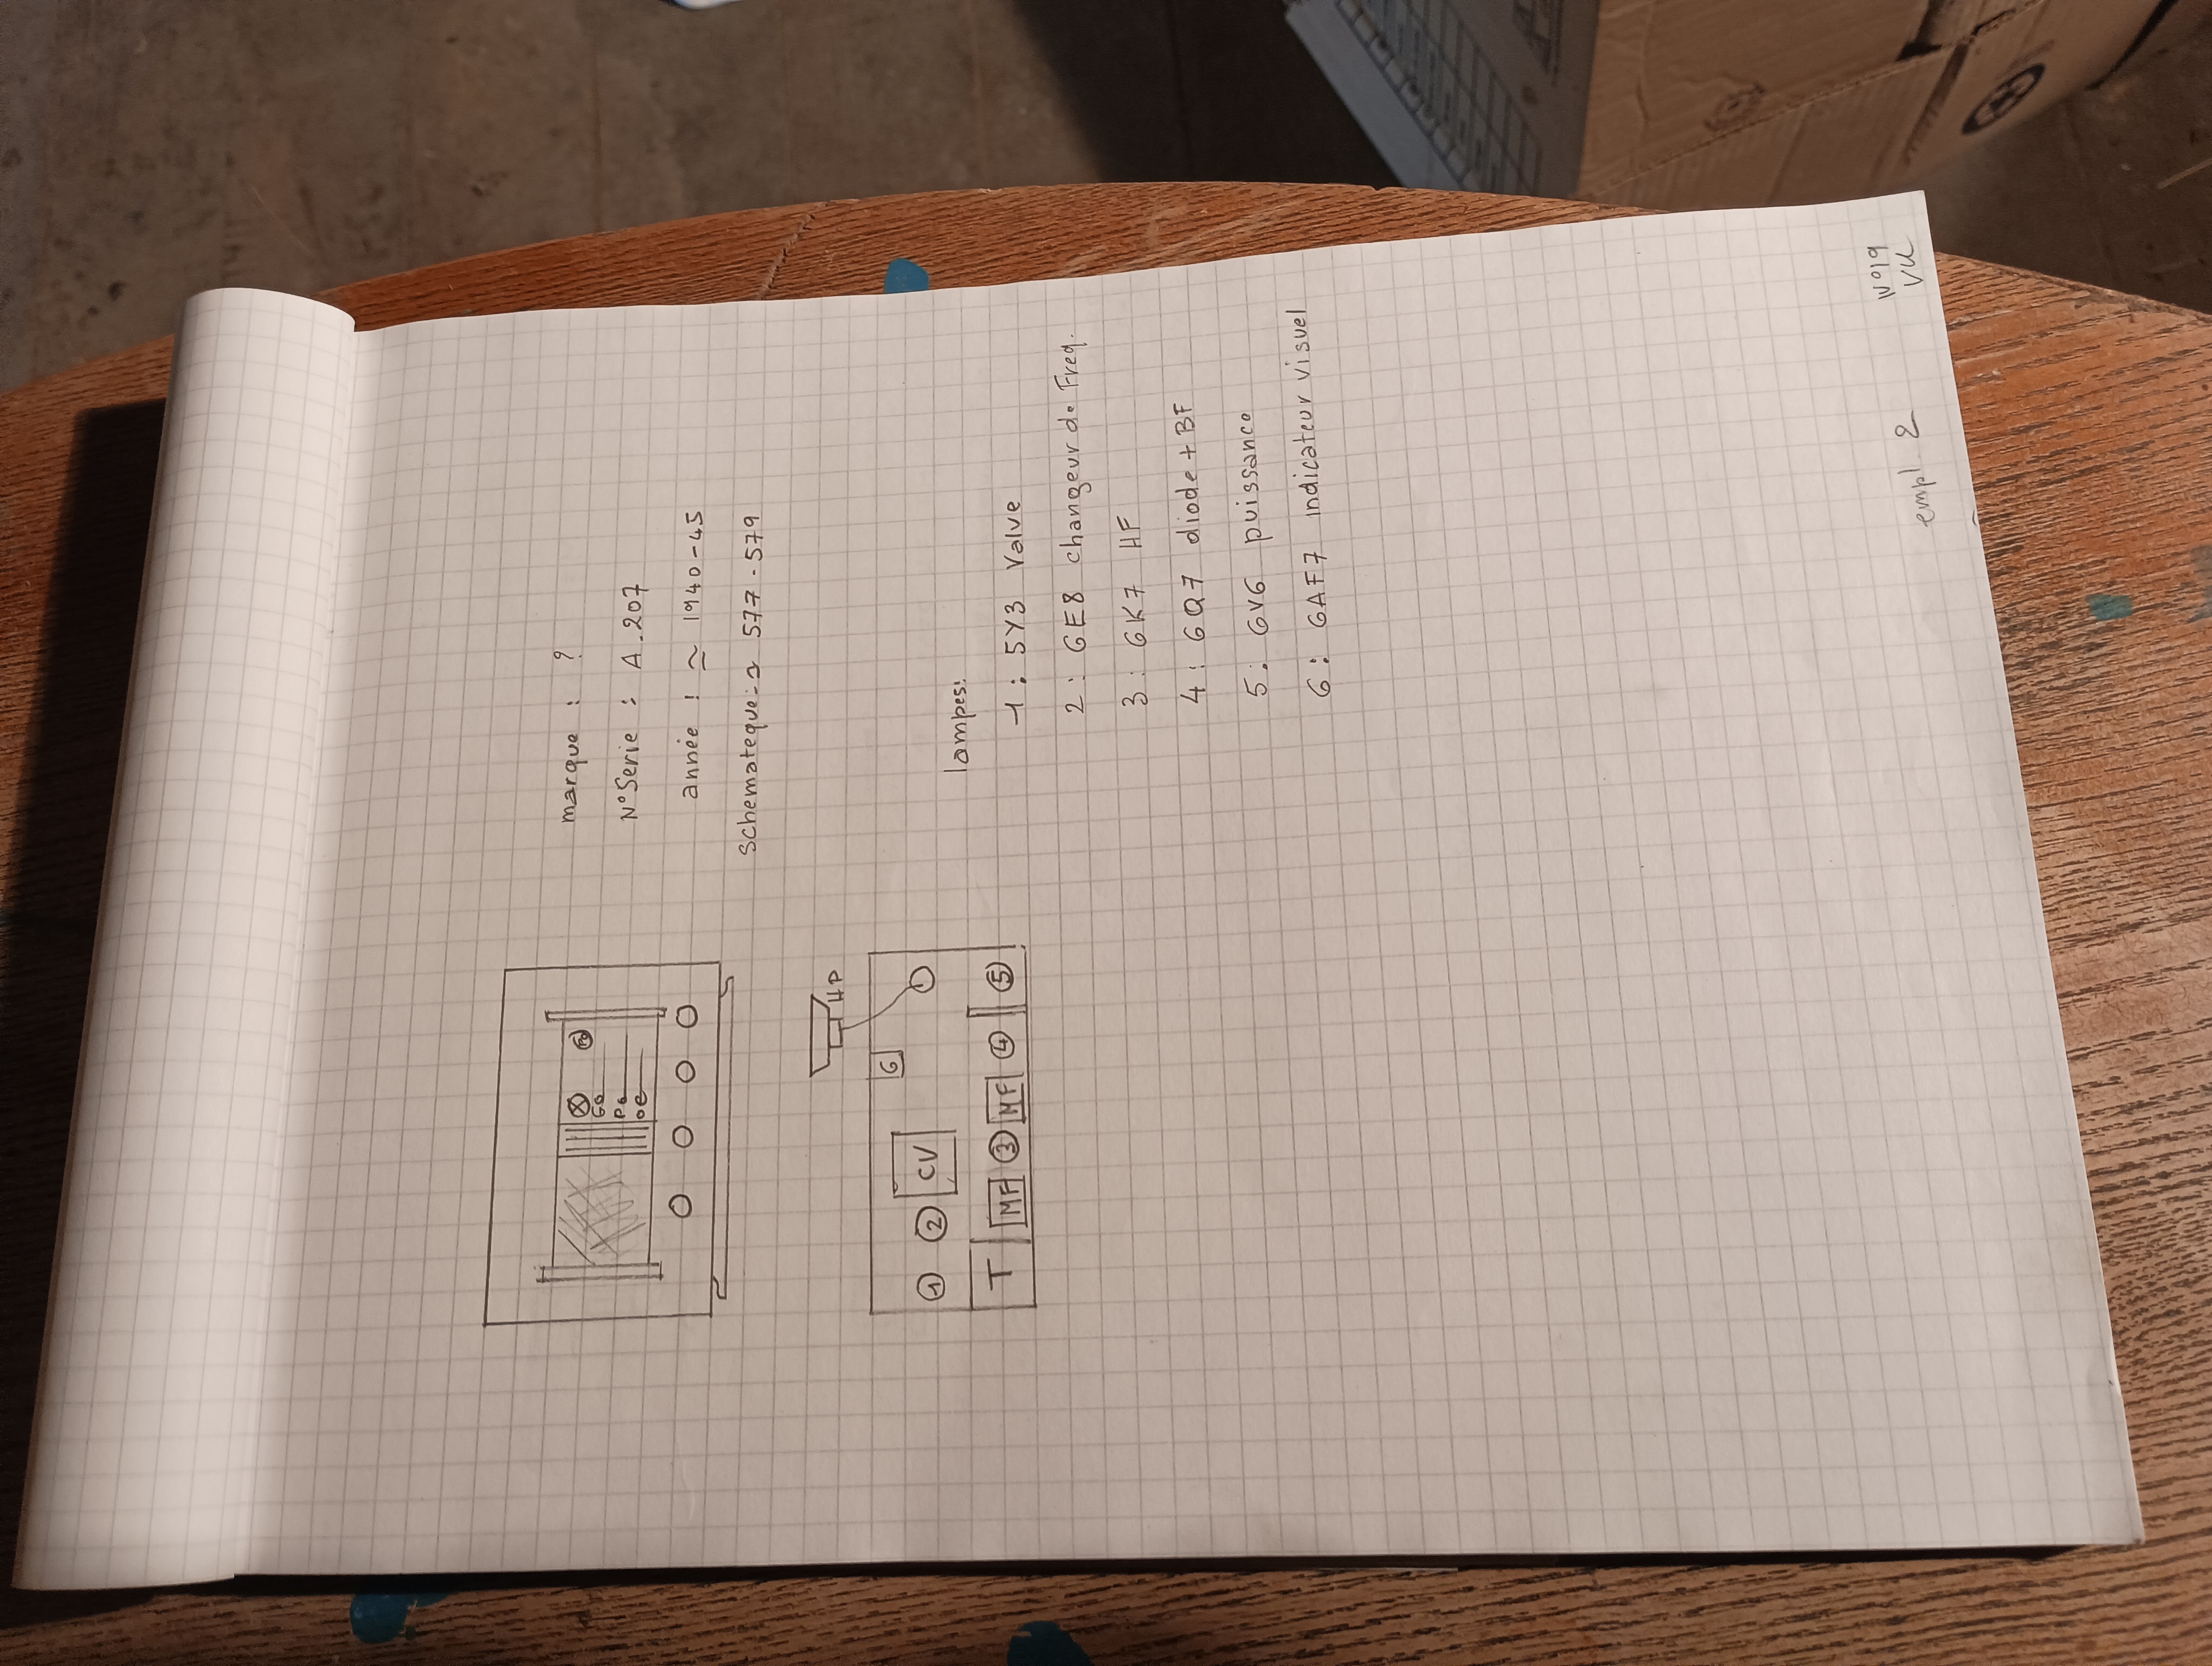 GO
PO
OC
marque : ?
N° Serie : A.207
année : ≃ 1940-45
Schemateque: ≃ 577-579
HP
6
1 2 CV
T MF 3 MF 4 5
lampes:
1: 5Y3 Valve
2: 6E8 changeur de Freq.
3: 6K7 HF
4: 6Q7 diode + BF
5: 6V6 puissance
6: 6AF7 indicateur visuel
empl. 2
N°19